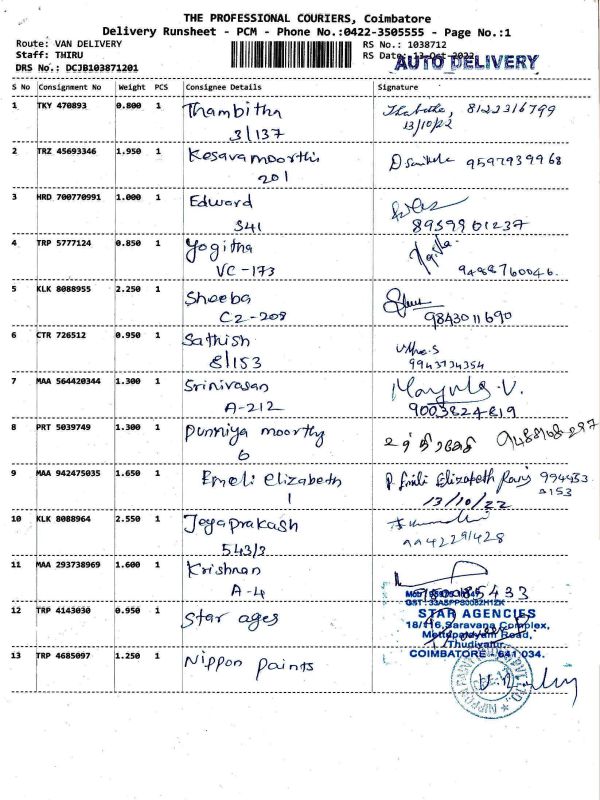 THE PROFESSIONAL COURIERS, Coimbatore
Delivery Runsheet - PCM - Phone No.:0422-3505555 - Page No.:1
Route: VAN DELIVERY RS No.: 1038712
Staff: THIRU RS Date: 13-Oct-2022
AUTO DELIVERY
DRS No.: DCJB103871201
S No Consignment No Weight PCS Consignee Details Signature
1 TKY 470893 0.800 1 Thambitha 8122316799
3/137 13/10/22
2 TRZ 45693346 1.950 1 Kesava moorthi 9597939968
201
3 HRD 700770991 1.000 1 Edward
341 8959901237
4 TRP 5777124 0.850 1 Yogitha
VC-173 9488760046.
5 KLK 8088955 2.250 1 Sheeba
C2-208 9843011690
6 CTR 726512 0.950 1 Sathish
8/153 9943134354
7 MAA 564420344 1.300 1 Srinivasan
A-212 9003824819
8 PRT 5039749 1.300 1 Punniya moorthy
6
9 MAA 942475035 1.650 1 Emeli elizabeth P. Emili Elizabeth 994433
1 13/10/22 0153
10 KLK 8088964 2.550 1 Jeyaprakash
543/3 9942291428
11 MAA 293738969 1.600 1 Krishnan
A-4
12 TRP 4143030 0.950 1 Star ages
STAR AGENCIES
18/116, Saravana Complex,
Mettupalayam Road,
Thudiyalur,
COIMBATORE - 641 034.
13 TRP 4685097 1.250 1 Nippon paints